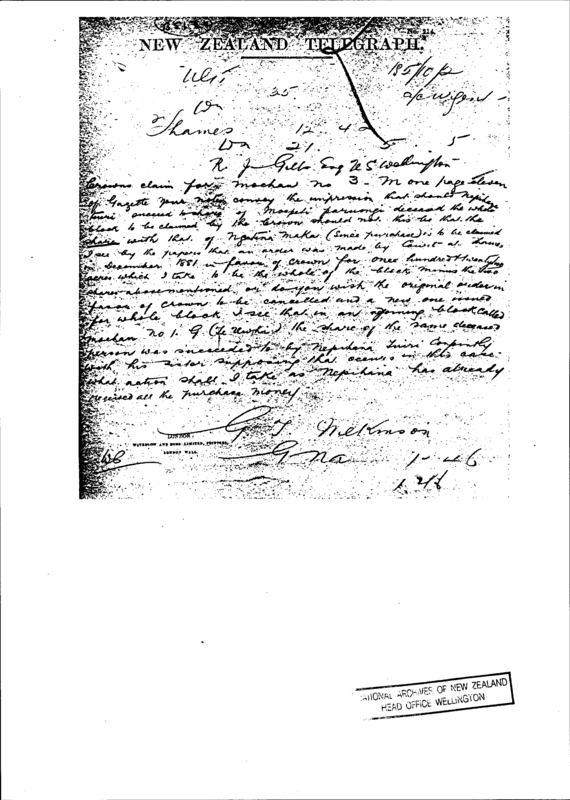 No. 214
NEW ZEALAND TELEGRAPH.
185/10/2
25
Thames 12.42 5 5
21
R J Gill Esq N S Wellington
Crowns claim for Moehau no 3. In one page eleven
of Gazette your notes convey the impression that should Nepihana
Tuiri succeed to share of deceased the whole
block to be claimed by the Crown should not this be that the
share with that of Ngatiria Maka (since purchase) is to be claimed
I see by the papers that an order was made by Court at Thames
in December 1881 in favor of Crown for one hundred & twenty two
acres which I take to be the whole of the block minus the two
shares abovementioned or do you wish the original order in
favor of Crown to be cancelled and a new one issued
for whole block I see that in an block called
Moehau no 1. G the share of the same deceased
person was succeeded to by Nepihana Tuiri conjointly
with his sister supposing that occurs in this case
what action shall I take as Nepihana has already
received all the purchase money
G T Wilkinson
LONDON:
WATERLOW AND SONS LIMITED, PRINTERS,
LONDON WALL.
1-46
NATIONAL ARCHIVES OF NEW ZEALAND
HEAD OFFICE WELLINGTON